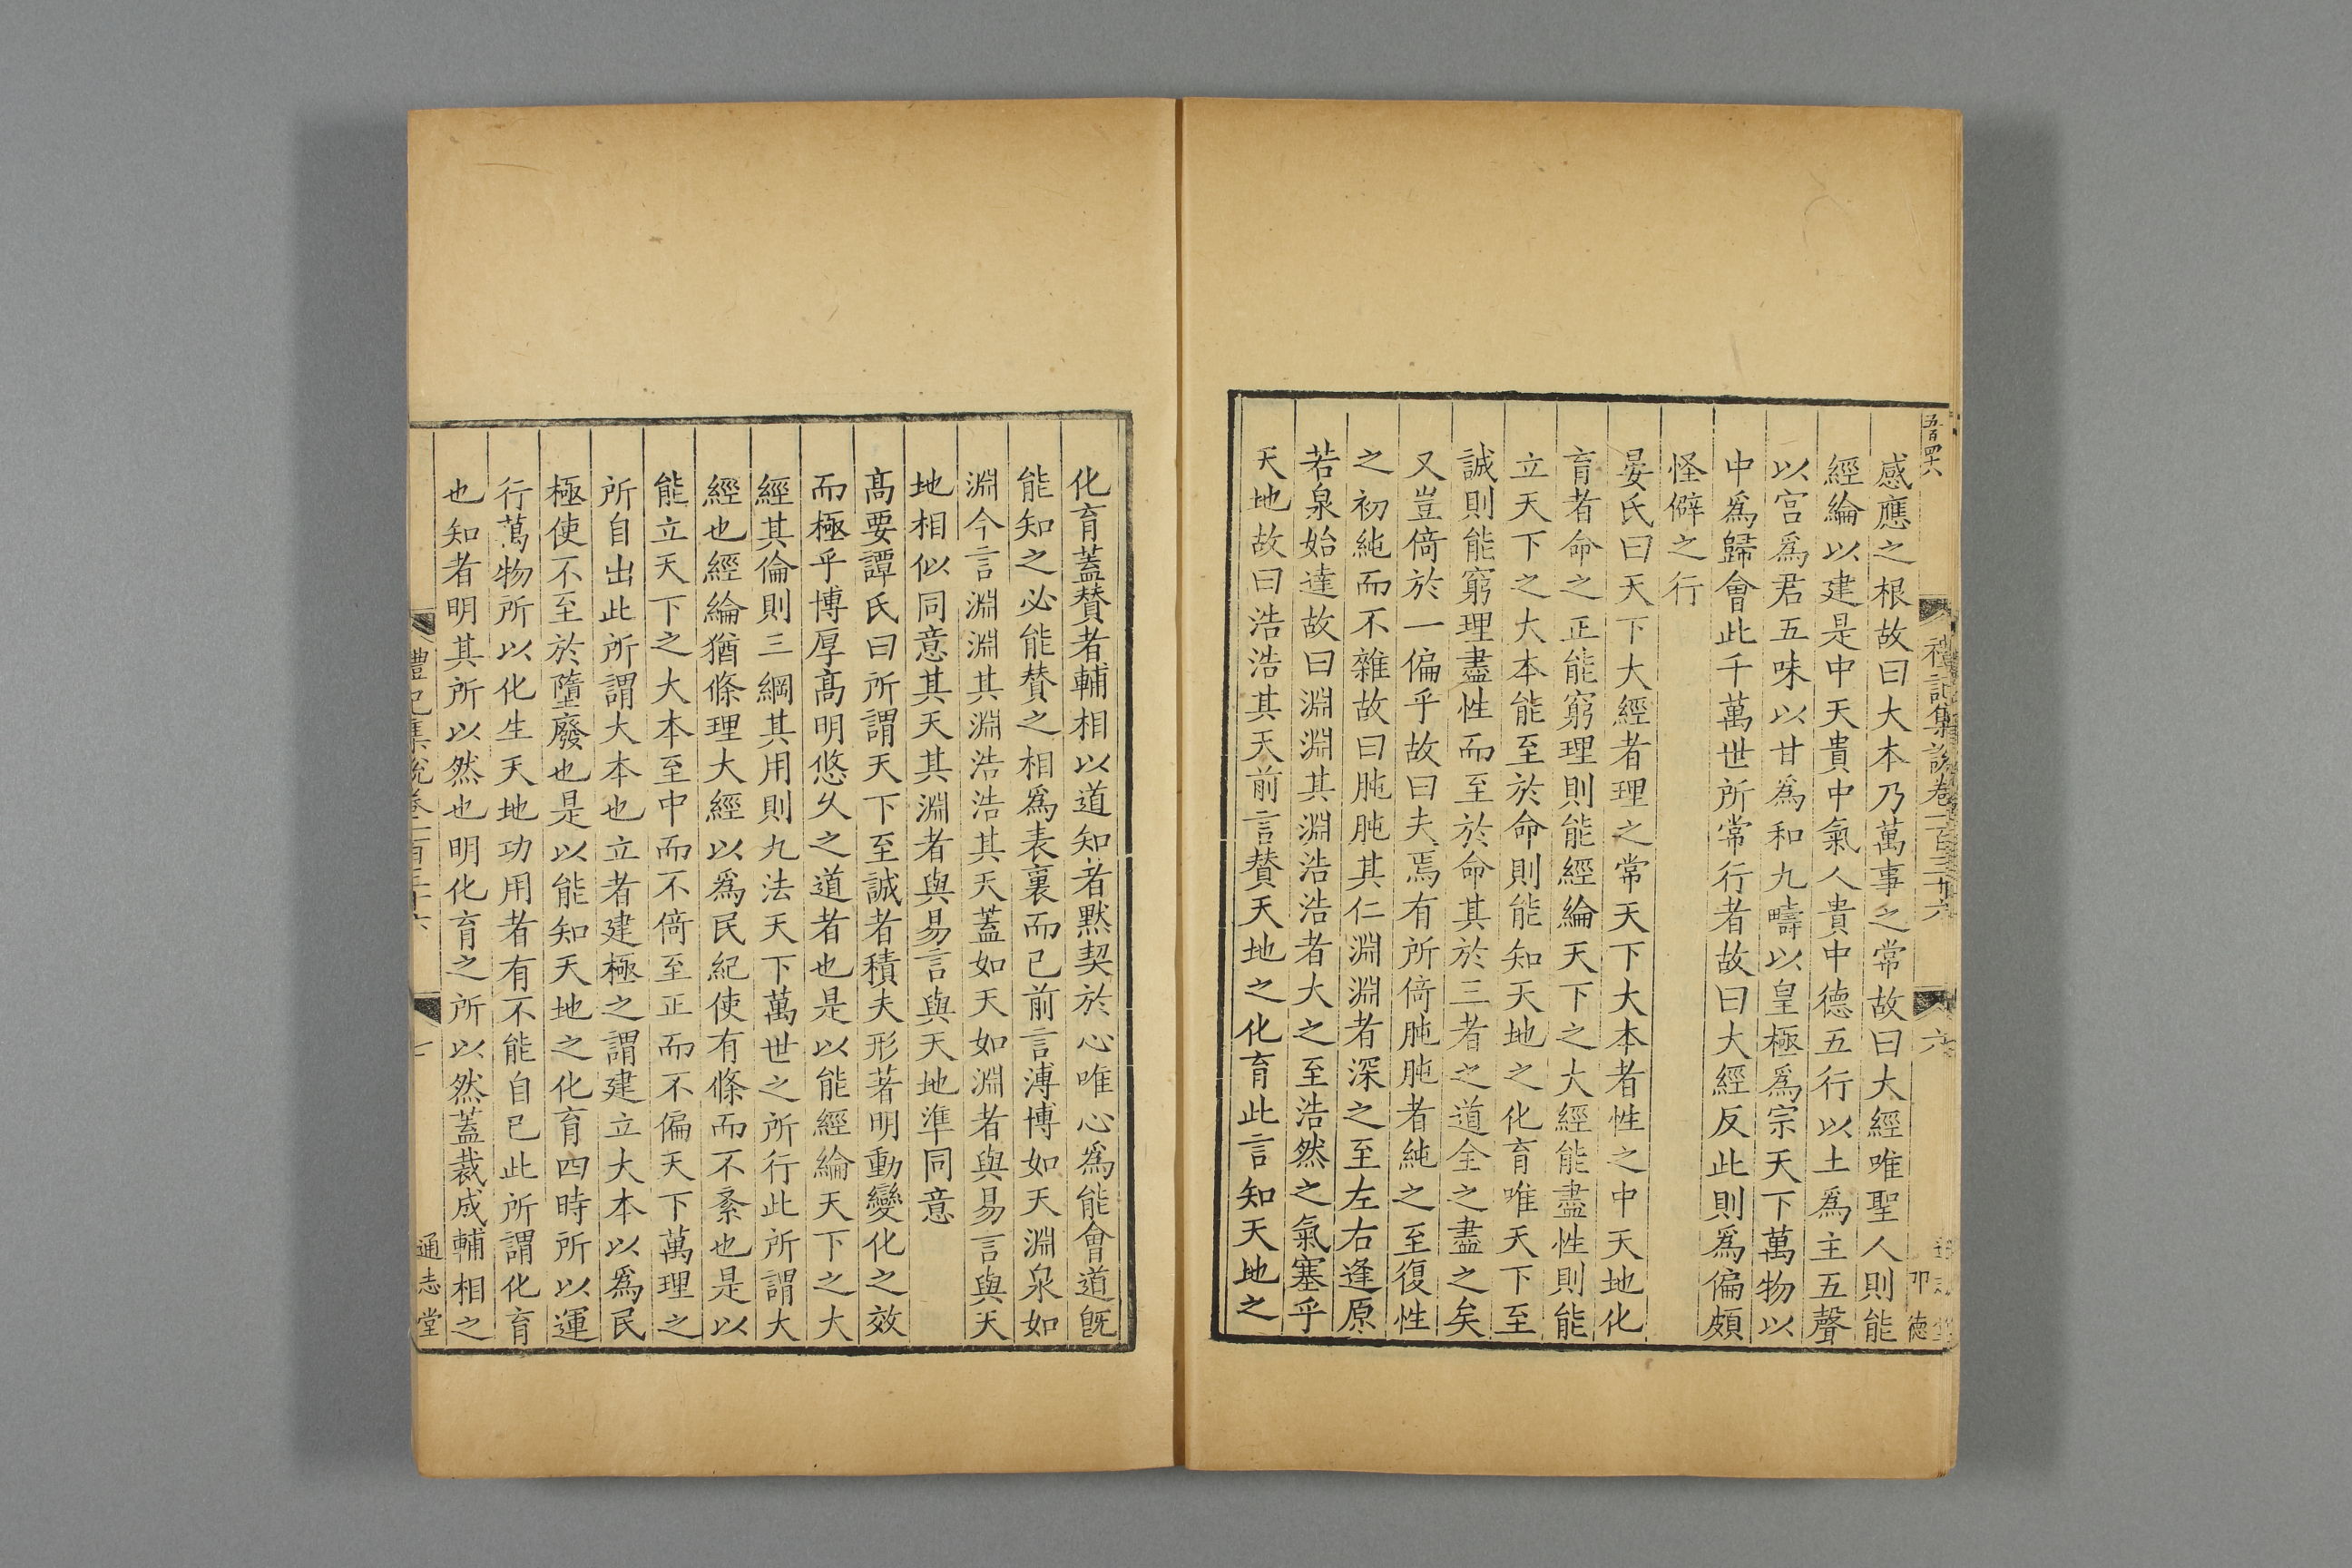 五百四六
禮記集說卷一百三十六
六
卭德
感應之根故曰大本乃萬事之常故曰大經唯聖人則能
經綸以建是中天貴中氣人貴中德五行以土爲主五聲
以宫爲君五味以甘爲和九疇以皇極爲宗天下萬物以
中爲歸會此千萬世所常行者故曰大經反此則爲偏頗
怪僻之行
晏氏曰天下大經者理之常天下大本者性之中天地化
育者命之正能窮理則能經綸天下之大經能盡性則能
立天下之大本能至於命則能知天地之化育唯天下至
誠則能窮理盡性而至於命其於三者之道全之盡之矣
又豈倚於一偏乎故曰夫焉有所倚肫肫者純之至復性
之初純而不雜故曰肫肫其仁淵淵者深之至左右逢原
若泉始達故曰淵淵其淵浩浩者大之至浩然之氣塞乎
天地故曰浩浩其天前言賛天地之化育此言知天地之
化育蓋賛者輔相以道知者黙契於心唯心爲能會道旣
能知之必能賛之相爲表裏而已前言溥博如天淵泉如
淵今言淵淵其淵浩浩其天蓋如天如淵者與易言與天
地相似同意其天其淵者與易言與天地準同意
髙要譚氏曰所謂天下至誠者積夫形著明動變化之效
而極乎博厚髙明悠久之道者也是以能經綸天下之大
經其倫則三綱其用則九法天下萬世之所行此所謂大
經也經綸猶條理大經以爲民紀使有條而不紊也是以
能立天下之大本至中而不倚至正而不偏天下萬理之
所自出此所謂大本也立者建極之謂建立大本以爲民
極使不至於墮廢也是以能知天地之化育四時所以運
行萬物所以化生天地功用者有不能自已此所謂化育
也知者明其所以然也明化育之所以然蓋裁成輔相之
禮記集說卷一百三十六
通志堂